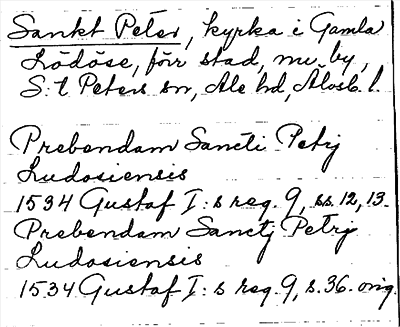 Sankt Peter, kyrka i Gamla
Lödöse, förr stad, nu by,
S:t Peters sn, Ale hd, Älvsb. l.
Prebendam Sancti Petrj
Ludosiensis
1534 Gustaf I:s reg. 9, ss. 12, 13.
Prebendam Sanctj Petrj
Ludosiensis
1534 Gustaf I:s reg. 9, s. 36. orig.